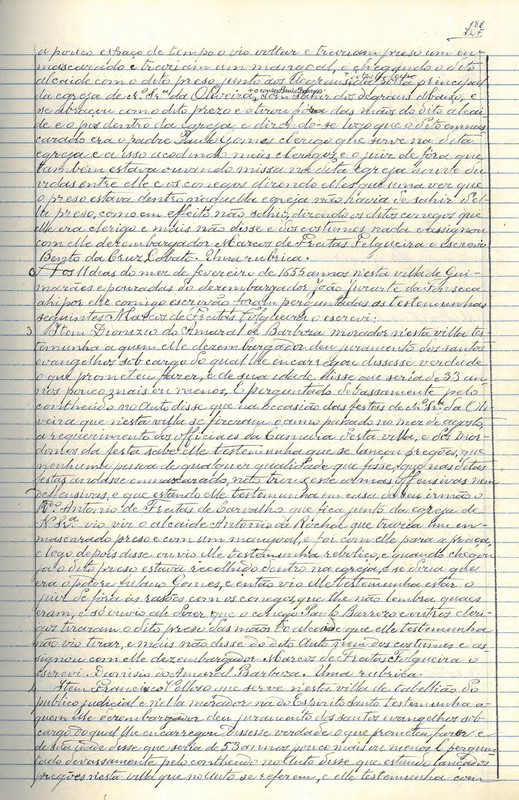 a pouco espaço de tempo o vio voltar e traziam preso um en-
mascarado e traziam um mangoal, e chegando o dito
alcaide com o dito preso junto aos degraus da porta principal
da egreja de N.ª Sr.ª da Oliveira, sem sahir dos degraus abaixo,
se abraçou com o dito prezo e o tirou fóra das mãos do dito alcai
de e o pôs dentro da egreja, e dizendo-se logo que o dito enmas
carado era o padre Paulo Gomes clerigo que serve na dita
egreja e a isso acodiram mais clerigos, e o juiz de fóra que
tambem estava ouvindo missa na dita egreja houve du
vidas entre elle e os conegos dizendo elles que uma vez que
o preso estava dentro naquella egreja não havia de sahir d'el-
la preso, como em effeito não sahiu, dizendo os ditos conegos que
elle era clerigo e mais não disse e dos costumes nada e assignou
com elle dezembargador Marcos de Freitas Felgueira o escrevi
Bento da Cruz Lobato. Uma rubrica.
Aos 11 dias do mez de fevereiro de 1655 annos n'esta villa de Gui-
marães e pouzadas do dezembargador João Duarte da Fonseca
ahi por elle comigo escrivão foram perguntadas as testemunhas
seguintes Marcos de Freitas Felgueira o escrevi:
3 Item Dionizio do Amaral de Barboza morador n'esta villa tes-
temunha a quem elle dezembargador deu juramento dos santos
evangelhos sob cargo do qual lhe encarregou dissesse verdade
o que prometeu fazer, e de sua idade disse que seria de 33 an-
nos pouco mais ou menos. E perguntado devassamente pelo
contheudo no Auto disse que na occasião das festas de N.ª Sr.ª da Oli-
veira que n'esta villa se fizeram o anno passado no mez de agosto,
a requerimento dos officiaes da Camara d'esta villa, e dos mor-
domos da festa sabe elle testemunha que se lançou pregões, que
nenhuma pessoa de qualquer qualidade que fosse, que nas ditas
festas andasse enmascarado, não trouxesse armas offensivas nem
deffensivas, e que estando elle testemunha em casa de seu irmão o
R.do Antonio de Freitas de Carvalho que fica junto da egreja de
N. Sr.ª vio vir o alcaide Antonio da Rocha que trazia um en-
mascarado preso e com um mangoal, e foi com elle para a praça,
e logo depois disse ouvio elle testemunha reboliço, e quando chegou
já o dito preso estava recolhido dentro na egreja, e se dizia que
era o padre Paulo Gomes, e então vio elle testemunha estar o
juiz de fóra ás rasões com os conegos, que lhe não lembra quaes
eram, e só ouvio ali dizer que o conego Paulo Barrozo e outros cleri-
gos tiraram o dito preso das mãos do alcaide que elle testemunha
não vio tirar, e mais não disse do dito Auto nem dos costumes e as-
signou com elle dezembargador Marcos de Freitas Felgueira o
escrevi. Dionizio do Amaral Barboza. Uma rubrica.
4 Item Francisco Velloso que serve nesta villa de tabellião do
publico judicial e nella morador na do Espirito Santo testemunha a
quem elle dezembargador deu juramento dos santos evangelhos sob
cargo do qual lhe encarregou dissesse verdade o que prometeu fazer e
de sua idade disse que seria de 53 annos pouco mais ou menos E pergun-
tado devassamente pelo contheudo no Auto disse que estando lançados
pregões nesta villa que no Auto se referem, e elle testemunha com